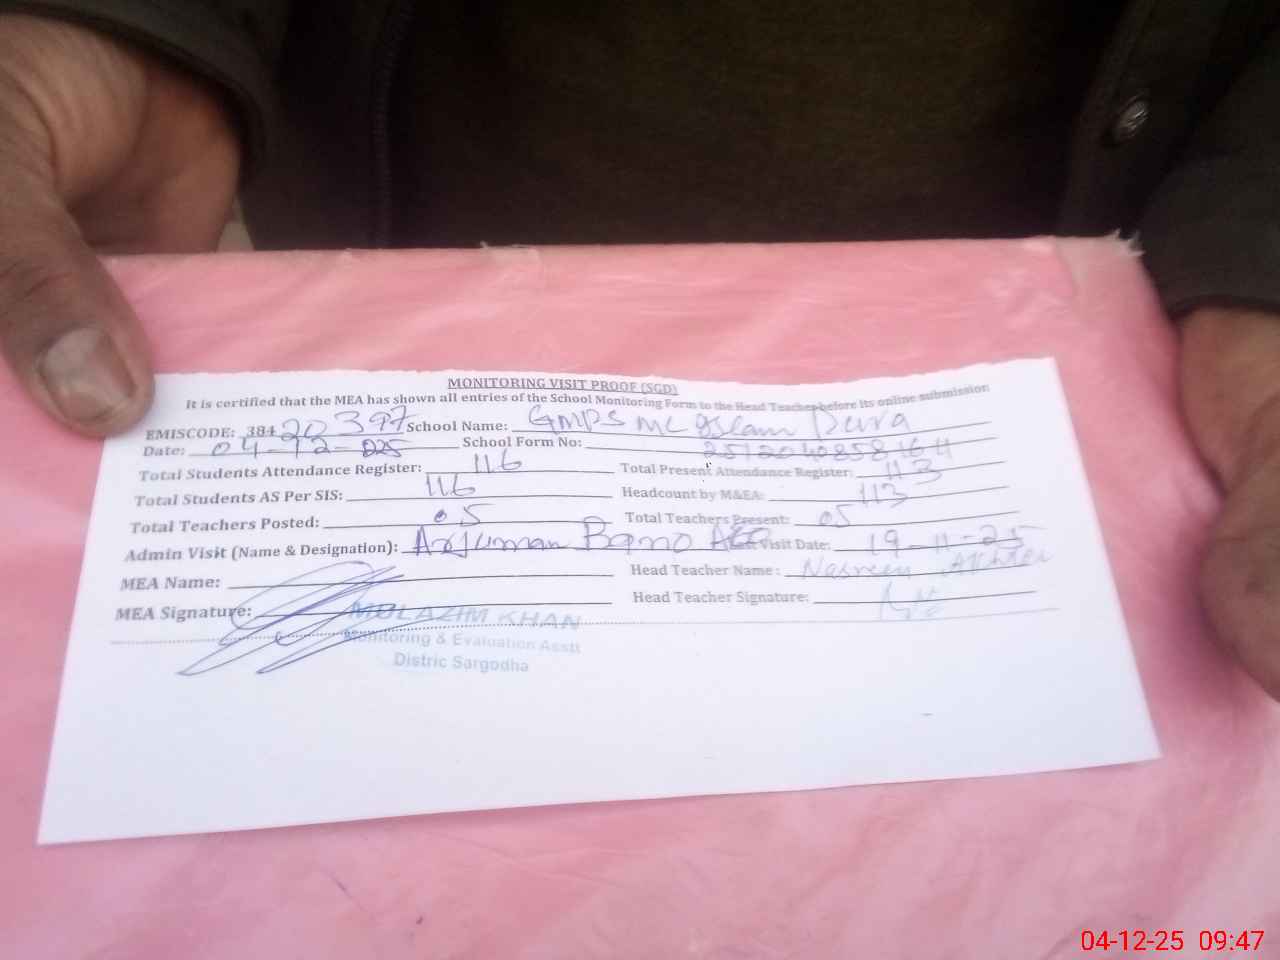 MONITORING VISIT PROOF (SGD)
It is certified that the MEA has shown all entries of the School Monitoring Form to the Head Teacher before its online submission
EMISCODE: 38420397 School Name: GMPS MC Islam Pura
Date: 04-12-025 School Form No: 2512040858164
Total Students Attendance Register: 116 Total Present Attendance Register: 113
Total Students AS Per SIS: 116 Headcount by M&EA: 113
Total Teachers Posted: 05 Total Teachers Present: 05
Admin Visit (Name & Designation): Arjuman Bano AEO Last Visit Date: 19-11-25
MEA Name: Head Teacher Name: Nasreen Akhter
MEA Signature: Head Teacher Signature:
MULAZIM KHAN
Monitoring & Evaluation Asstt
Distric Sargodha
04-12-25 09:47